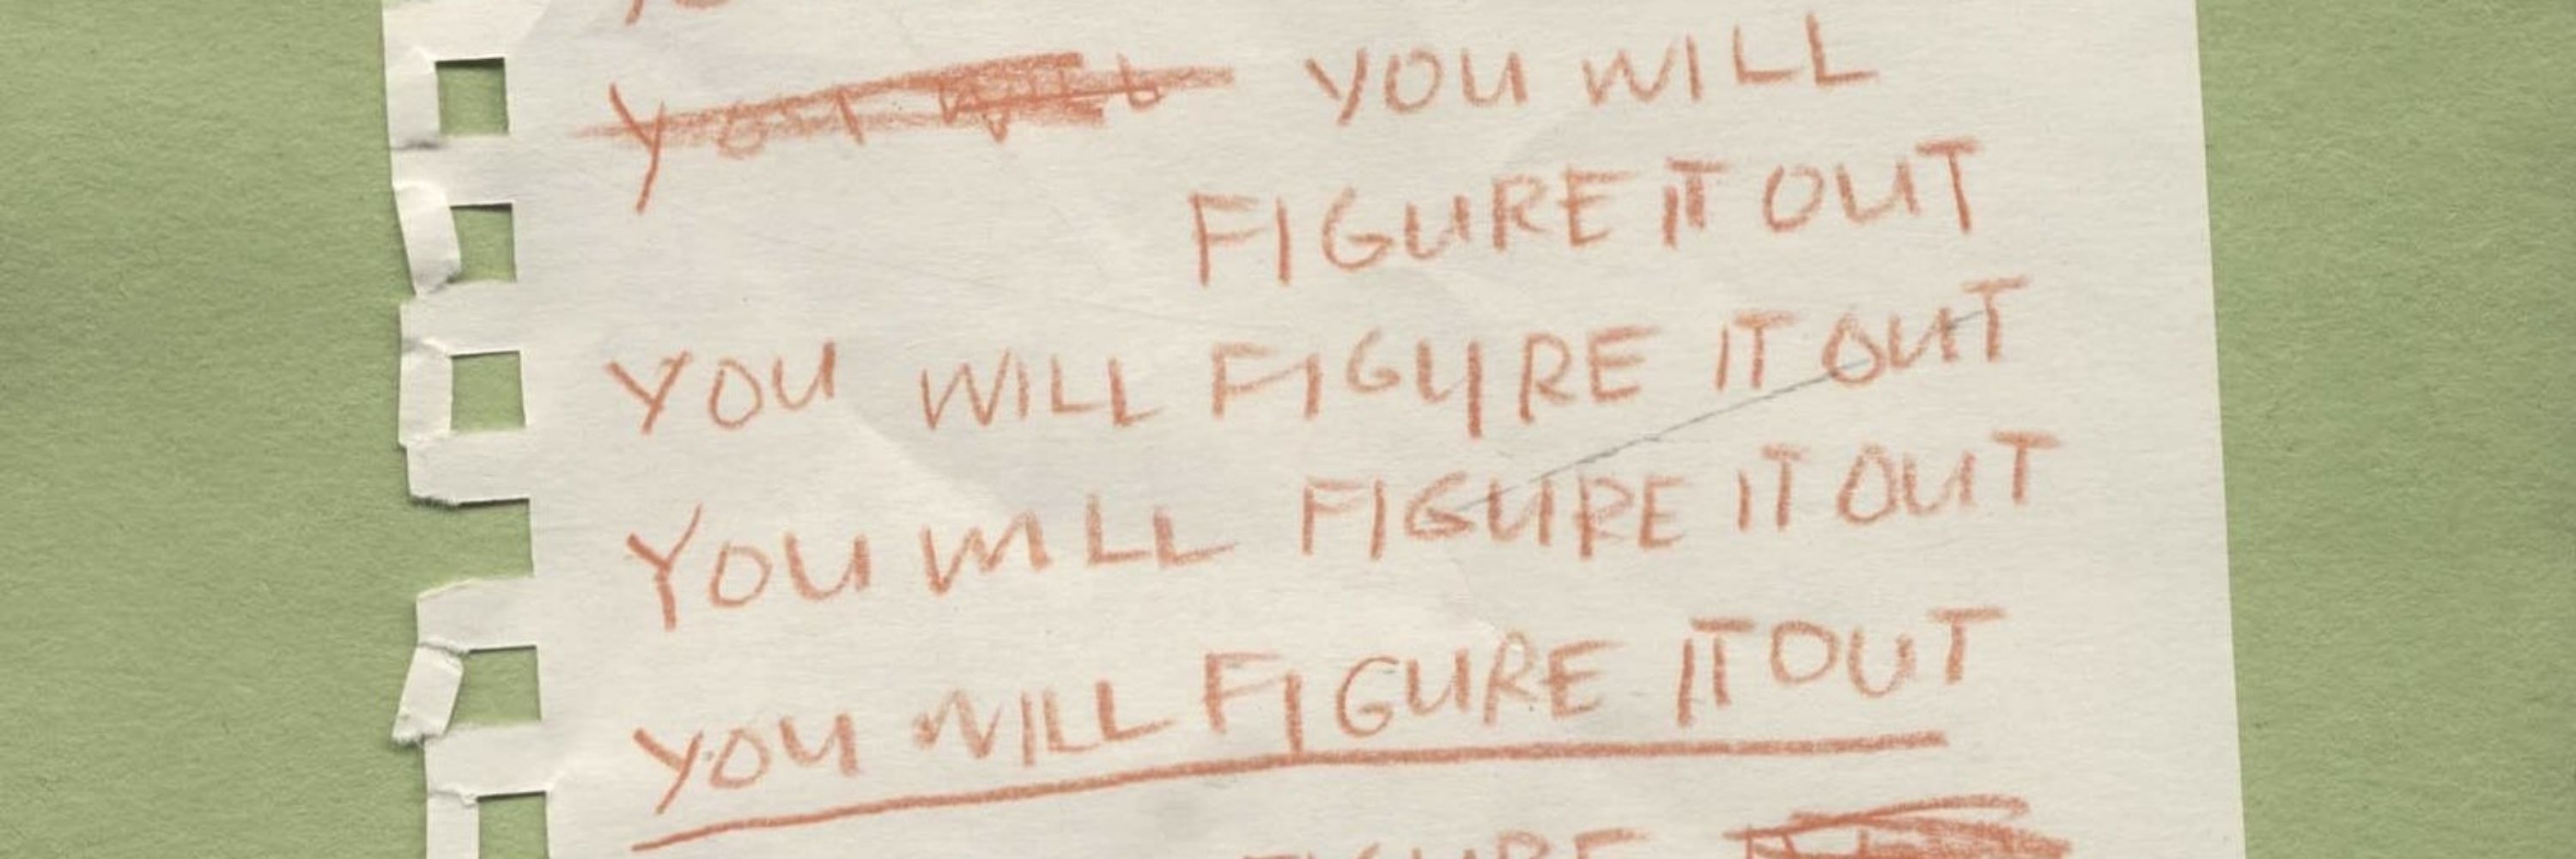 YOU WILL
FIGURE IT OUT
YOU WILL FIGURE IT OUT
YOU WILL FIGURE IT OUT
YOU WILL FIGURE IT OUT
FIGURE